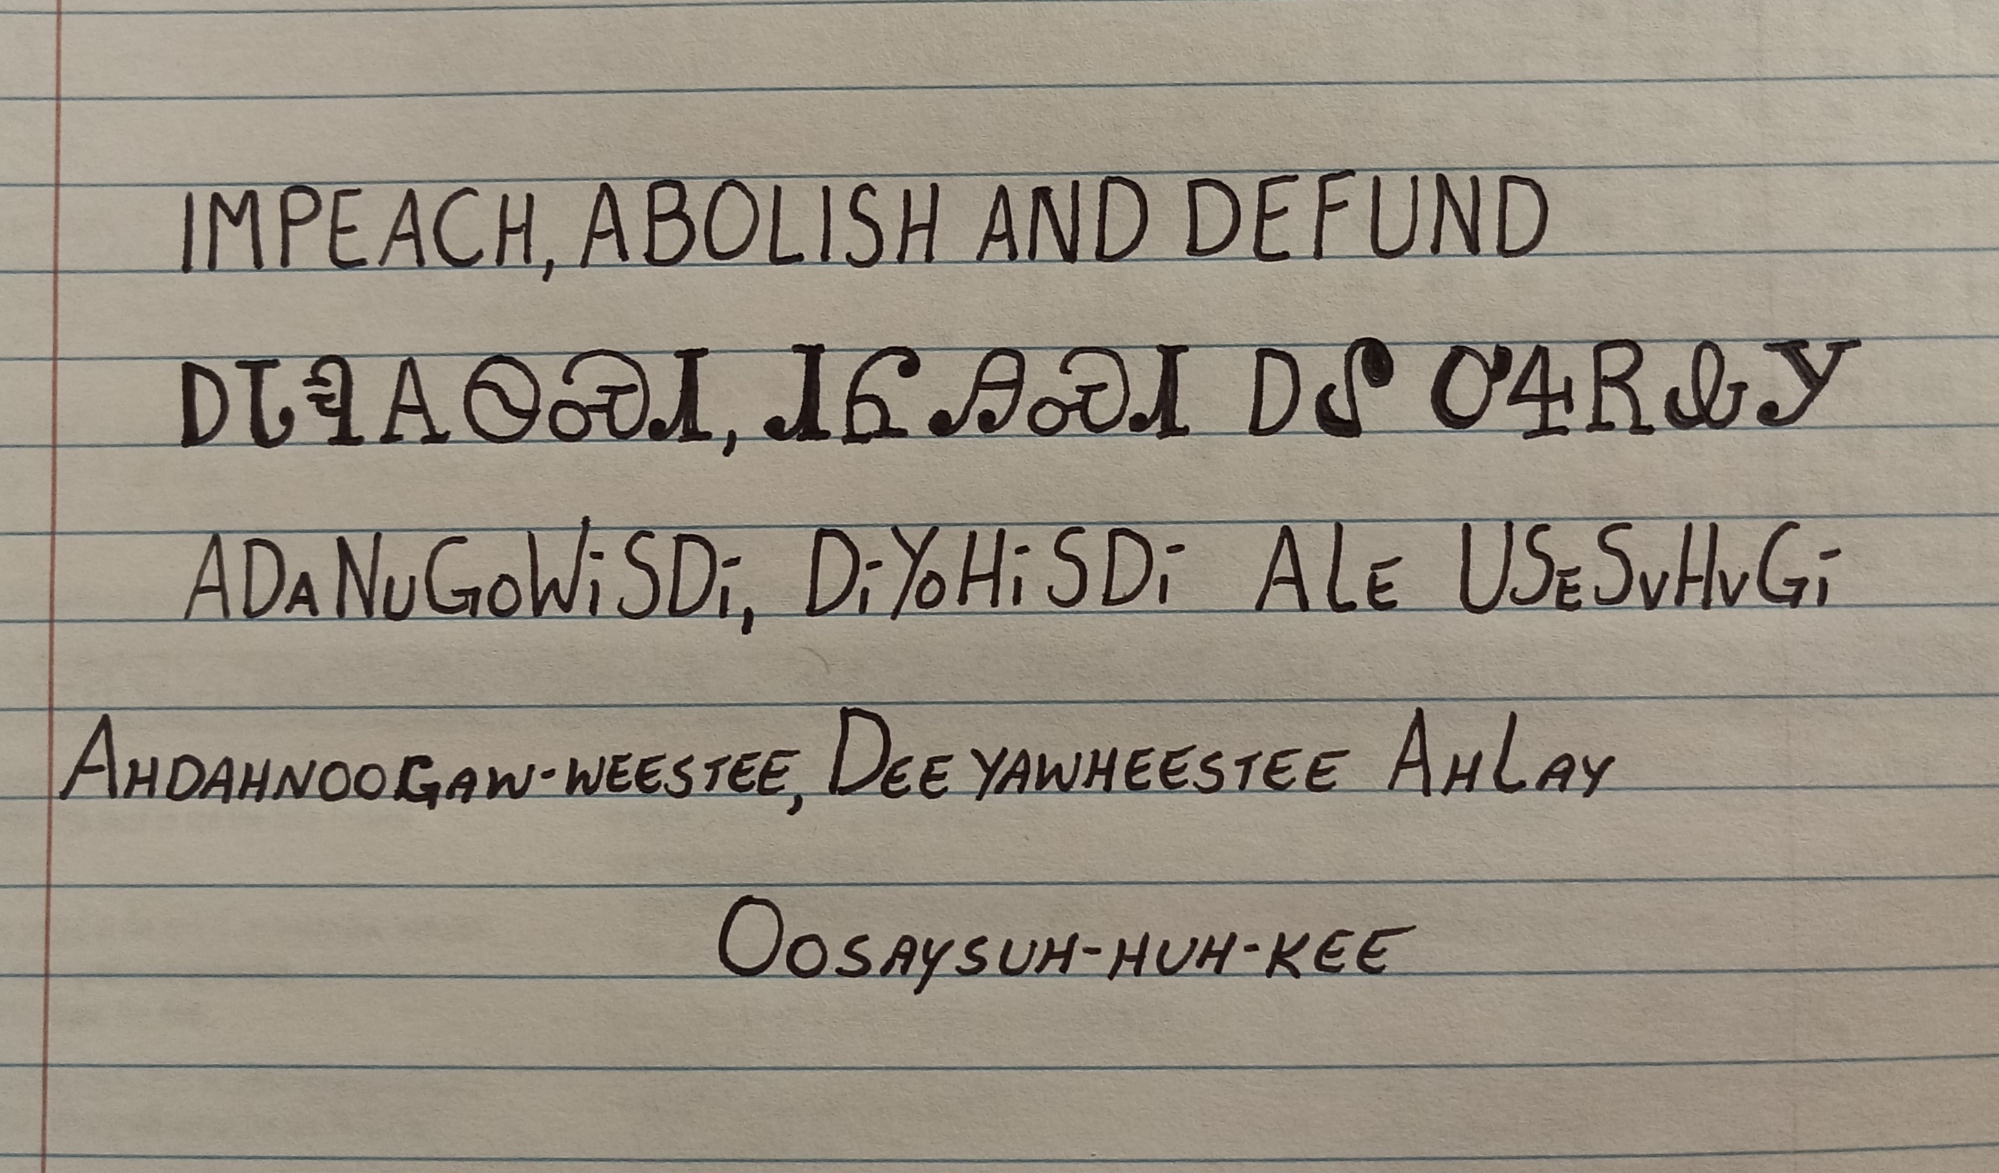 IMPEACH, ABOLISH AND DEFUND
ᎠᏓᏄᎪᏫᏍᏗ, ᏗᏲᎯᏍᏗ ᎠᎴ ᎤᏎᏒᎲᎩ
ADANUGOWiSDi, DiYOHiSDi ALE USESVHVGi
AHDAHNOOGAW-WEESTEE, DEEYAWHEESTEE AHLAY
OOSAYSUH-HUH-KEE